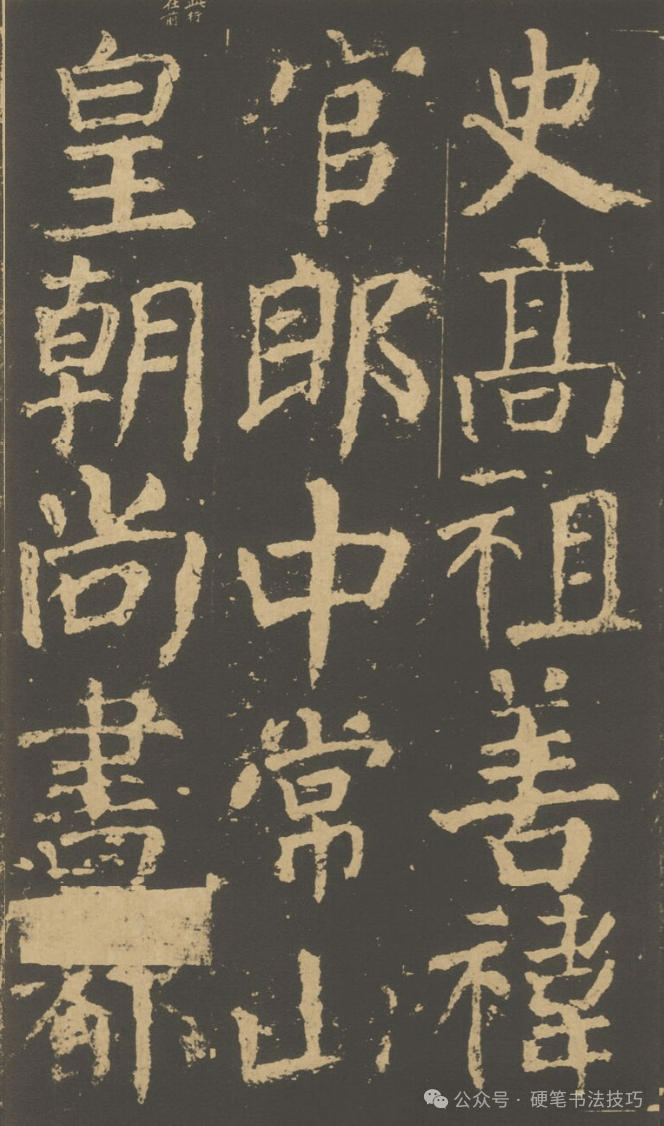 史高祖善禕
官郎中常山
皇朝尚書都
此行
在前
公众号·硬笔书法技巧